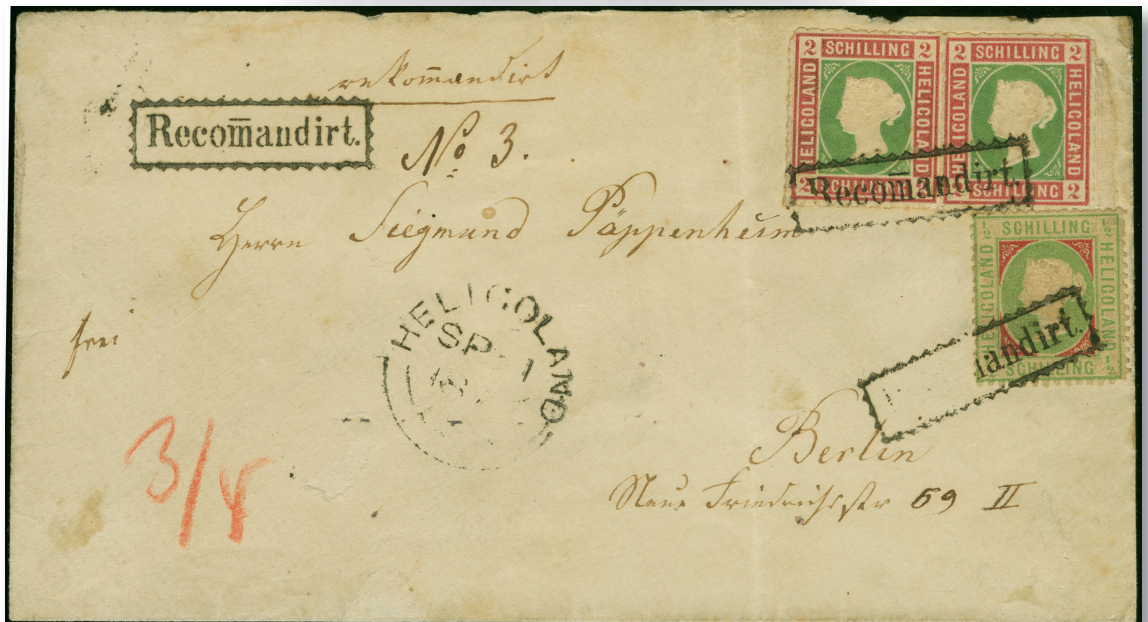 rekom̄andirt
Recom̄andirt.
No 3.
Herrn Siegmund Pappenheim
frei
HELIGOLAND
SP 1
3/8
Berlin
Neue Friedrichstr 69 II
2 SCHILLING 2
HELIGOLAND
HELIGOLAND
2 SCHILLING 2
2 SCHILLING 2
HELIGOLAND
HELIGOLAND
SCHILLING 2
Recom̄andirt.
½ SCHILLING ½
HELIGOLAND
HELIGOLAND
SCHILLING ½
andirt.